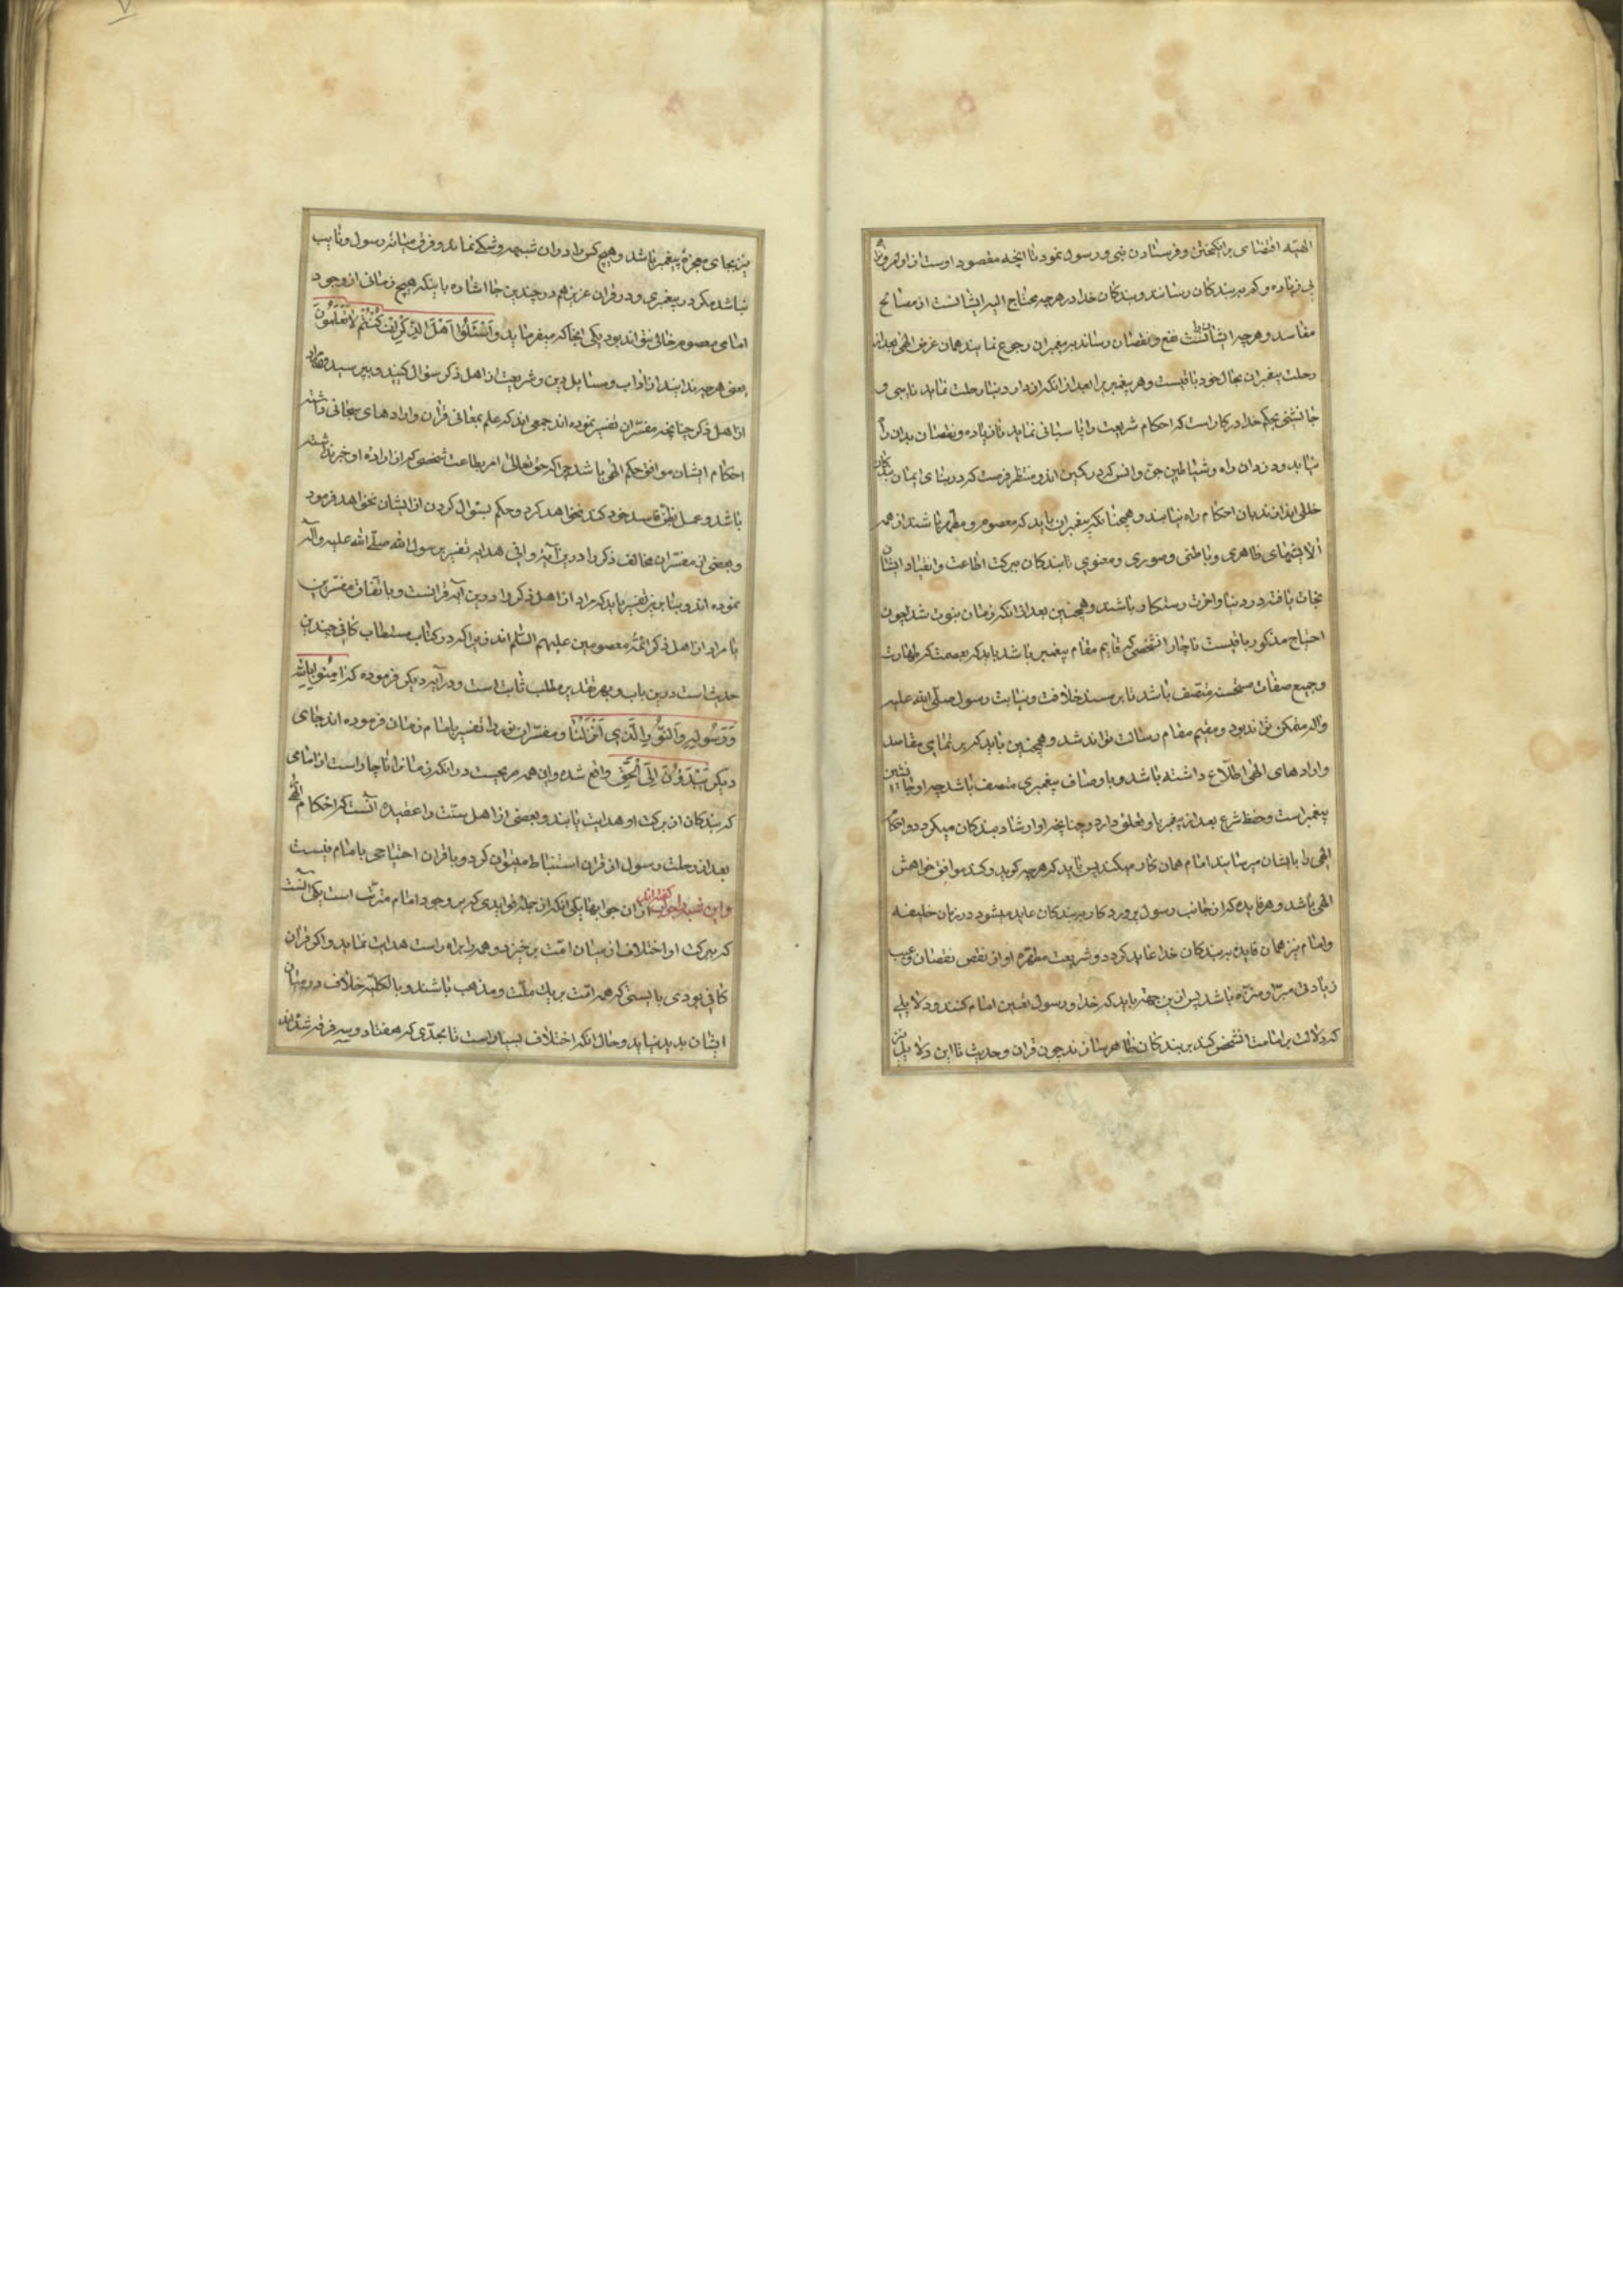 الهیّه اقتضای برانکیختن و فرستادن نبی و رسول نمود تا انچه مقصود اوست از اوامر و نواهی
بی زیاده و کم به بندکان رساند و بندکان خدا در هرچه محتاج الیه ایشانست از مصالح
مفاسد و هرچه ایشانرا نفع و نقصان رساند به پیغمبران رجوع نمایند همان غرض الهی بعد از
رحلت پیغمبران بحال خود باقیست و هر پیغمبر را بعد از انکه از دار دنیا رحلت نماید نایبی و
جانشینی بحکم خدا در کار است که احکام شریعت را پاسبانی نماید تا زیاده و نقصان بدان راه
نیابد و دزدان راه و شیاطین جن و انس که در کمین اند و منتظر فرصت که در بنای ایمان بندکان
خللی اندازند بان احکام راه نیابند و همچنانکه پیغمبران باید که معصوم و مطهر باشند از همه
الایشهای ظاهری و باطنی و صوری و معنوی تا بندکان ببرکت اطاعت و انقیاد ایشان
نجات یافته در دنیا و اخرت رستکار باشند و همچنین بعد از انکه زمان نبوت شد چون
احتیاج مذکور باقیست ناچار انشخصی که قایم مقام پیغمبر باشد باید که بعصمت که طهارت
و جمیع صفات مستحسنه متصف باشد تا بر مسند خلافت و نیابت رسول صلّی الله علیه
واله متمکن تواند بود و مقیم مقام رسالت تواند شد و همچنین باید که بر تمامی مقاصد
و ارادهای الهی اطلّاع داشته باشد و باوصاف پیغمبری متصف باشد چه او جانشین
پیغمبر است و حفظ شرع بعد از پیغمبر باو تعلق دارد و چنانچه او ارشاد بندکان میکرد و احکام
الهی را بایشان میرسانید امام همان کار میکند پس باید که هرچه کوید و کند موافق خواهش
الهی باشد و هر فایده که از جانب رسول پروردکار به بندکان عاید میشود در زمان خلیفه
و امام نیز همان فایده به بندکان خدا عاید کردد و شریعت مطهّره او از نقص نقصان و عیب
زیادتی مبرّا و منزّه باشد پس از این جهة باید که خدا و رسول تعیین امام کنند و دلایلی
که دلالت بر امامت انشخص کند بر بندکان ظاهر سازند چون قران و حدیث تا این دلایل
نیز بجای معجزهٔ پیغمبر باشد و هیچ کس را در ان شبهه و شکی نماند و فرق میانه رسول و نایب
نباشد مکر در پیغمبری و در قران عزیز هم در چندین جا اشاره باینکه هیچ زمانی از وجود
امامی معصوم خالی نتواند بود یکی انجا که میفرماید وَاَسْئَلُوا اَهْلَ الذِّکْرِ اِنْ کُنْتُمْ لَا تَعْلَمُونَ
یعنی هرچه ندانید از اداب و مسایل دین و شریعت از اهل ذکر سؤال کنید و بپرسید و مراد
از اهل ذکر چنانچه مفسّران تفسیر نموده اند جمعی اند که علم بمعانی قران و ارادهای سبحانی داشته
احکام ایشان موافق حکم الهی باشد چرا که حق تعالی امر بطاعت شخصی که از اراده او خبر نداشته
باشد و عمل بظن فاسد خود کند نخواهد کرد و حکم بسؤال کردن از ایشان نخواهد فرمود
و بعضی از مفسّران مخالف ذکر را درین آیه وافی هدایه تفسیر برسول الله صلّی الله علیه وآله
نموده اند و بنا برین تفسیر باید که مراد از اهل ذکر درین آیه قرانست و باتفاق مفسّرین
یا مراد از اهل ذکر ائمّه معصومین علیهم السّلم اند زیرا که در کتاب مستطاب کافی چندین
حدیث است درین باب و بهر تقدیر مطلب ثابت است و در آیه دیکر فرموده که اٰمِنُوا بِاللّٰهِ
وَرَسُولِهِ وَالنّوُرِ الَّذِي اَنْزَلْنَا و مفسّران نور را تفسیر بامام زمان فرموده اند جای
دیکر یَهْدُونَ اِلَی الْحَقِّ واقع شده و این همه صریحست در انکه زمانرا ناچار است از امامی
که بندکان از برکت او هدایت یابند و بعضی از اهل سنّت را عقیده آنست که احکام الهی
بعد از رحلت رسول از قران استنباط میتوان کرد و با قران احتیاجی بامام نیست
و این شبهه را جواب کفته اند از ان جوابها یکی انکه از جملهٔ فوایدی که بر وجود امام مترتّب است یکی آنست
که ببرکت او اختلاف از میان امّت برخیزد و همه را براه راست هدایت نماید و اکر قران
کافی بودی بایستی که همه امّت بر یك ملّت و مذهب باشند و بالکلیّه خلاف در میان
ایشان پدید نیاید و حال انکه اختلاف بسیار است تا بحدّی که هفتاد و سه فرقه شده اند